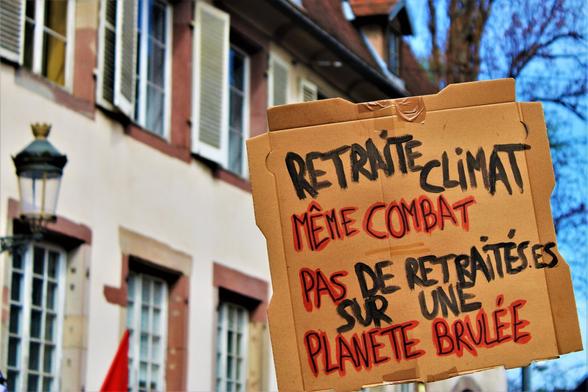 RETRAITE CLIMAT
MÊME COMBAT
PAS DE RETRAITÉS.ES
SUR UNE
PLANETE BRULÉE